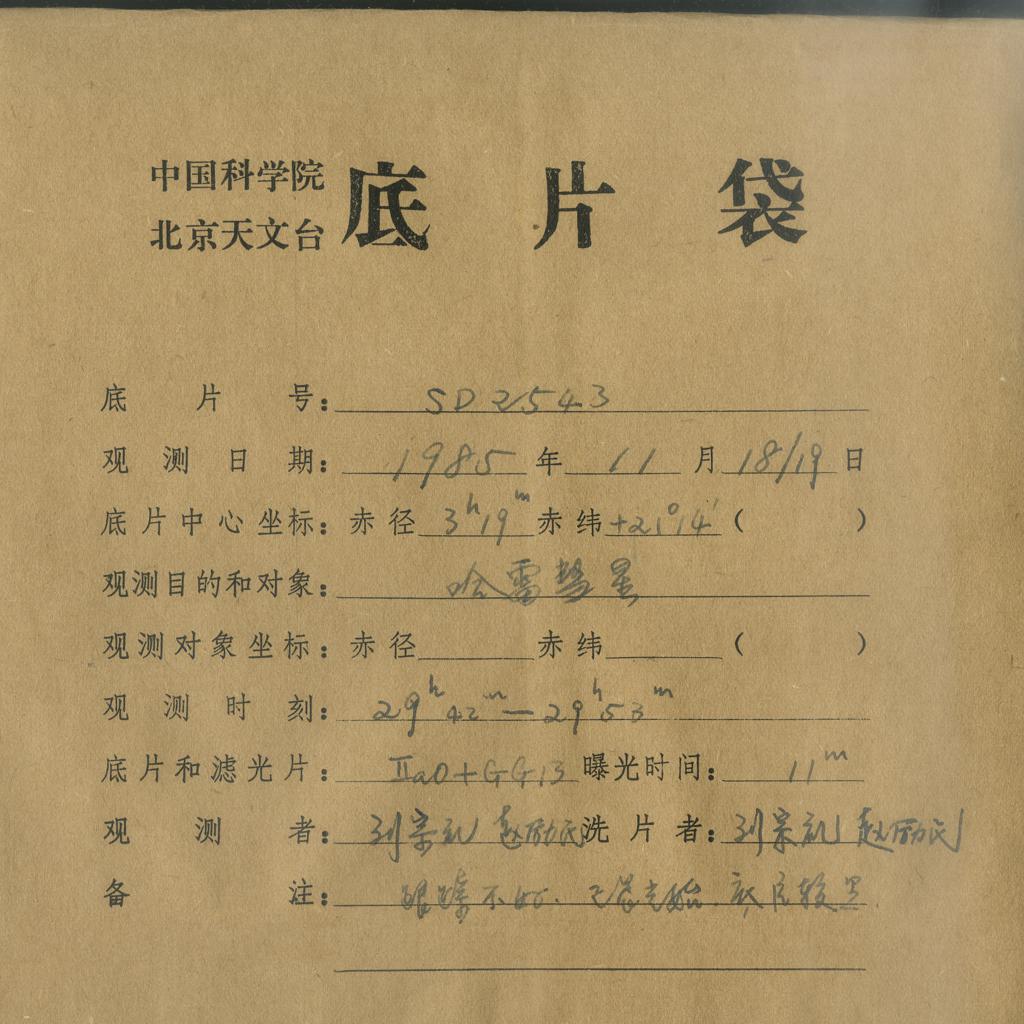 中国科学院
北京天文台
底片袋
底片号: SD2543
观测日期: 1985年11月18/19日
底片中心坐标: 赤径 3ʰ19ᵐ 赤纬 +21°14′ ( )
观测目的和对象: 哈雷彗星
观测对象坐标: 赤径 赤纬 ( )
观测时刻: 29ʰ42ᵐ—29ʰ53ᵐ
底片和滤光片: ⅡaO+GG13 曝光时间: 11ᵐ
观测者: 刘宗礼 赵励民 洗片者: 刘宗礼 赵励民
备注: 跟踪不好. 已晨光始. 底片较黑.